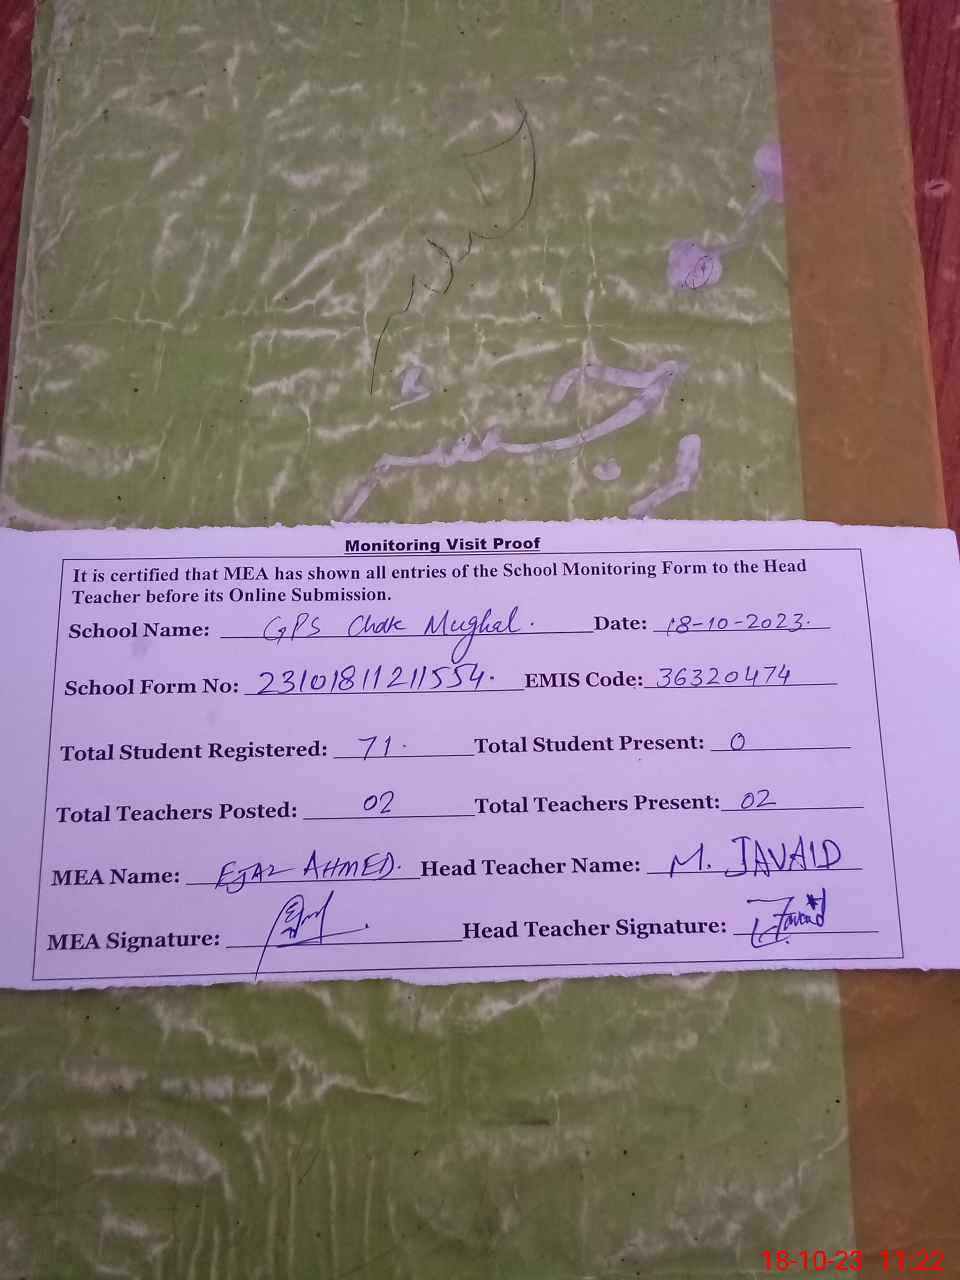 رجسٹر
Monitoring Visit Proof
It is certified that MEA has shown all entries of the School Monitoring Form to the Head
Teacher before its Online Submission.
School Name: GPS Chak Mughal. Date: 18-10-2023.
School Form No: 23101811211554. EMIS Code: 36320474
Total Student Registered: 71. Total Student Present: 0
Total Teachers Posted: 02 Total Teachers Present: 02
MEA Name: EJAZ AHMED. Head Teacher Name: M. JAVAID
MEA Signature: Head Teacher Signature: Javaid
18-10-23 11:22